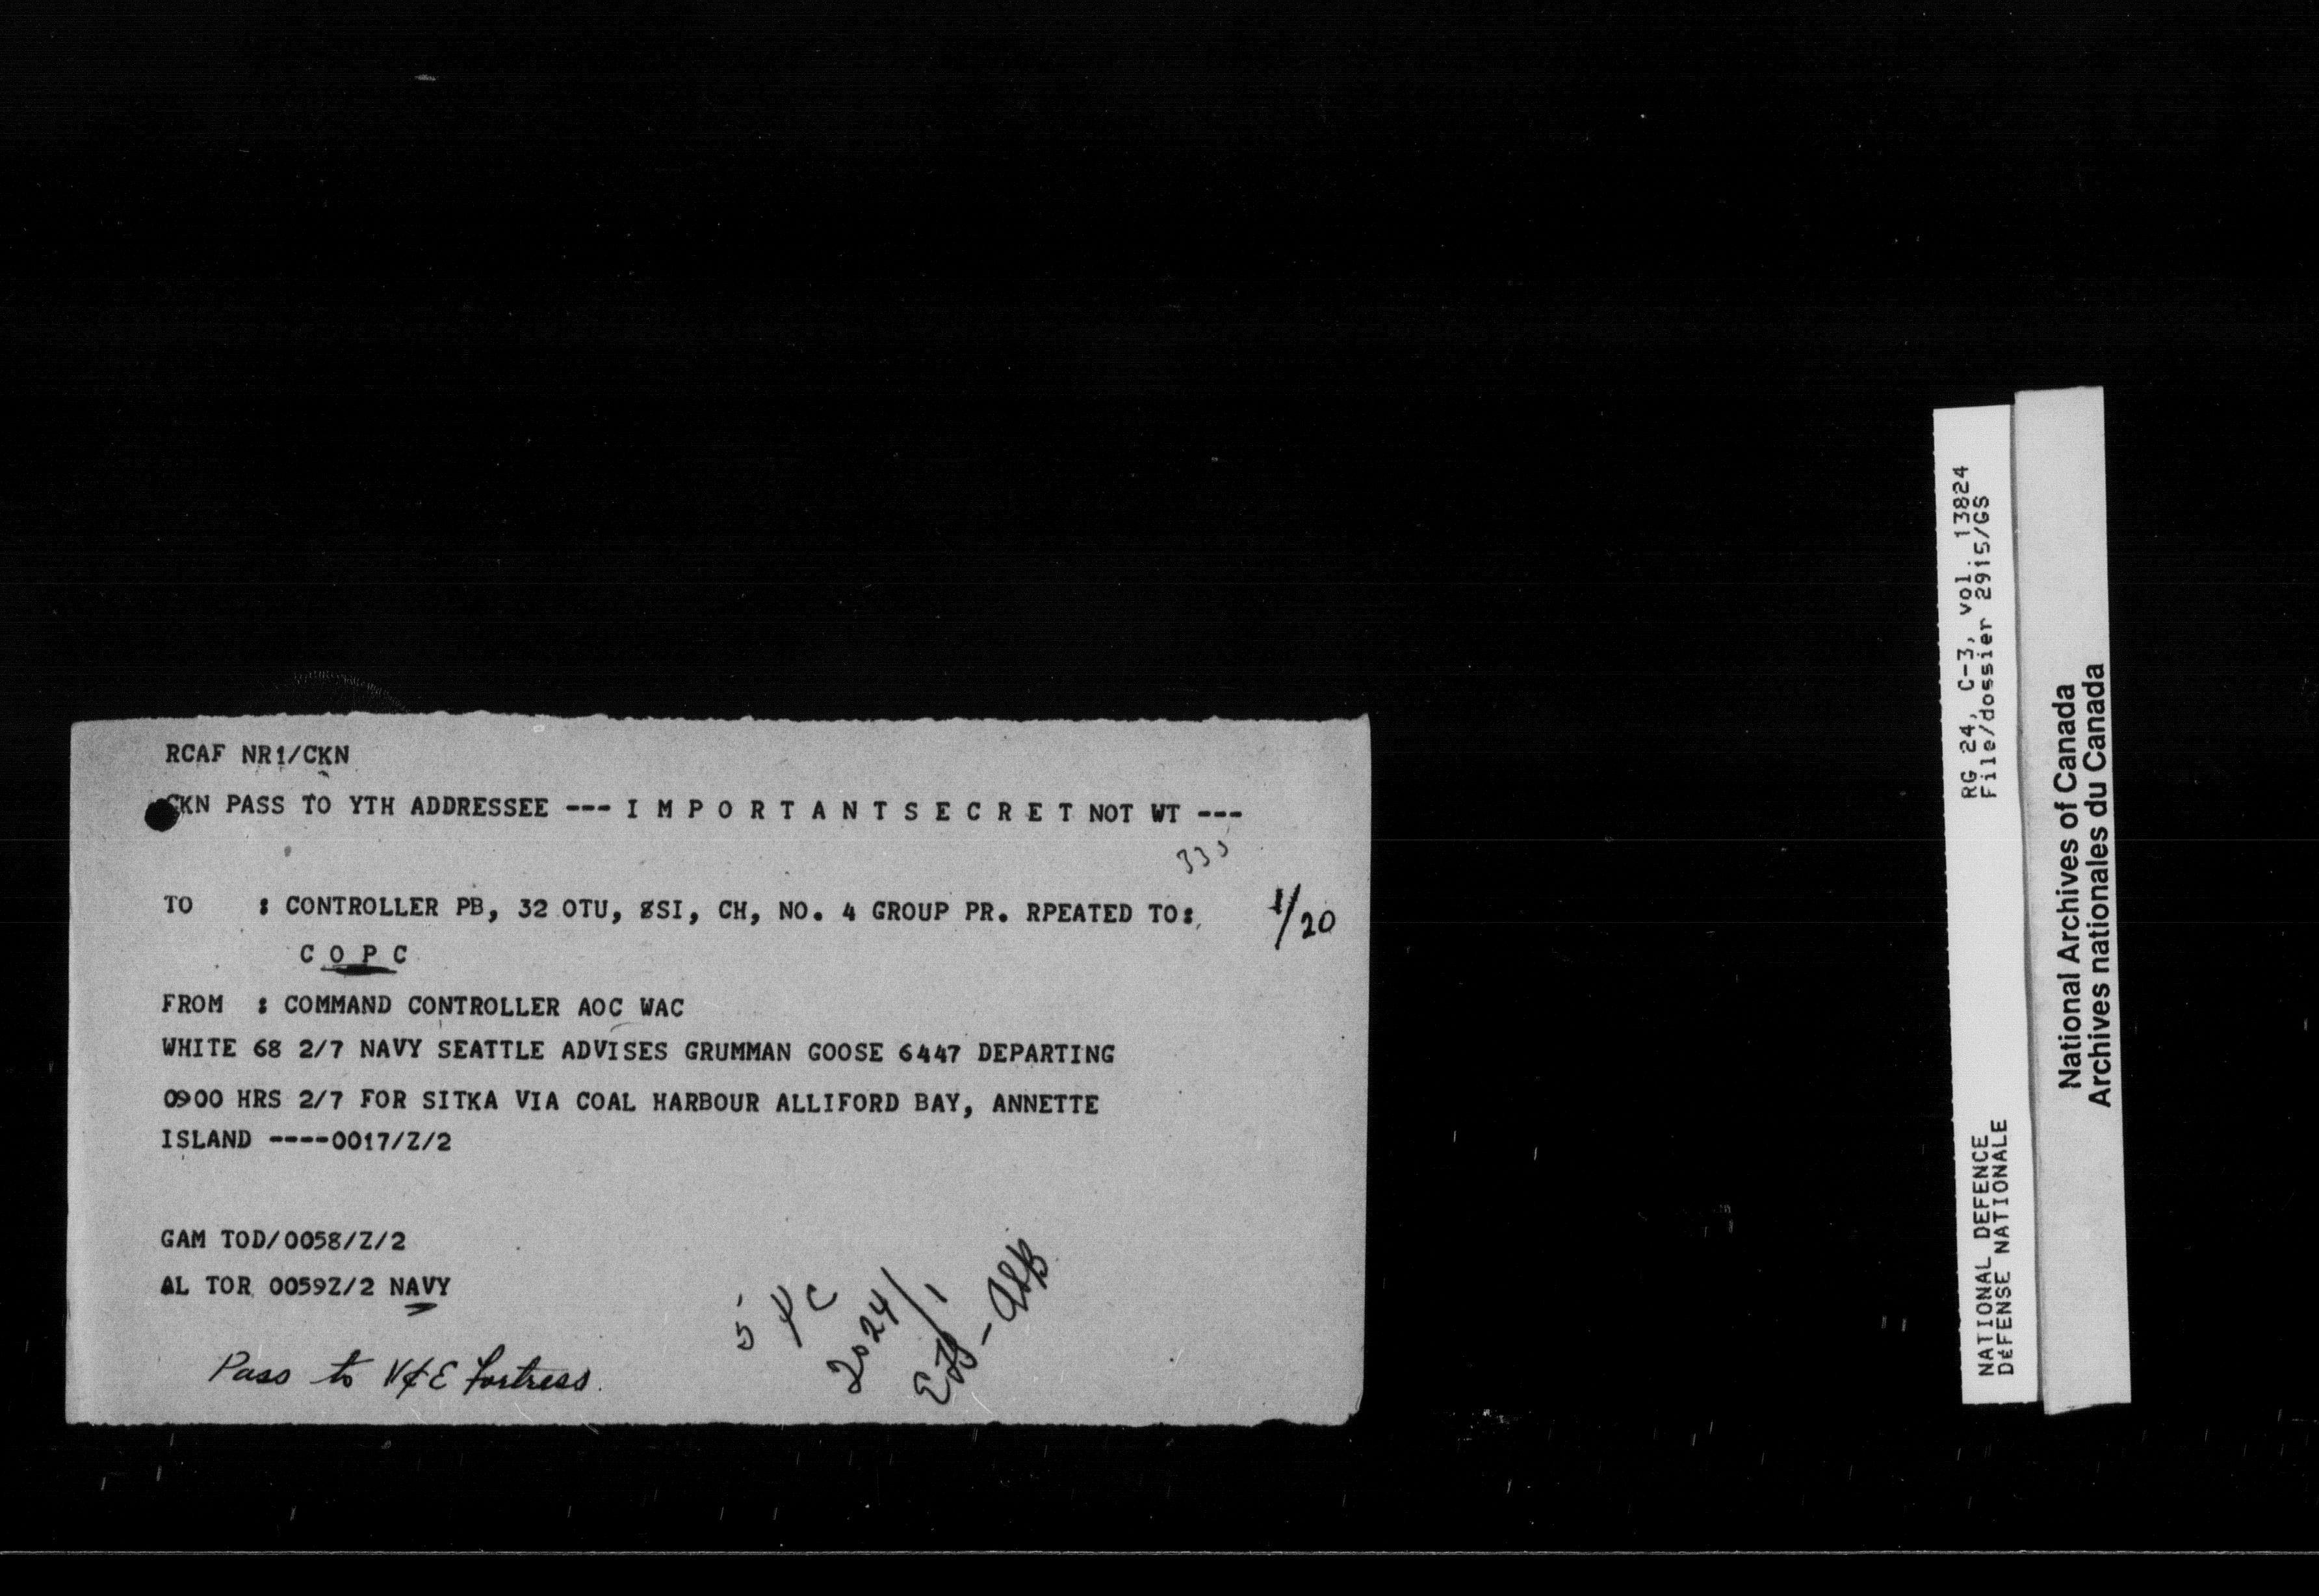 RCAF NR1/CKN
CKN PASS TO YTH ADDRESSEE --- I M P O R T A N T S E C R E T NOT WT ---
TO : CONTROLLER PB, 32 OTU, 8SI, CH, NO. 4 GROUP PR. RPEATED TO:
1/20
C O P C
FROM : COMMAND CONTROLLER AOC WAC
WHITE 68 2/7 NAVY SEATTLE ADVISES GRUMMAN GOOSE 6447 DEPARTING
0900 HRS 2/7 FOR SITKA VIA COAL HARBOUR ALLIFORD BAY, ANNETTE
ISLAND ----0017/Z/2
GAM TOD/0058/Z/2
AL TOR 0059Z/2 NAVY
Pass to V&E Fortress.
2024/1
RG 24, C-3, vol. 13824
File/dossier 2915/GS
NATIONAL DEFENCE
DÉFENSE NATIONALE
National Archives of Canada
Archives nationales du Canada